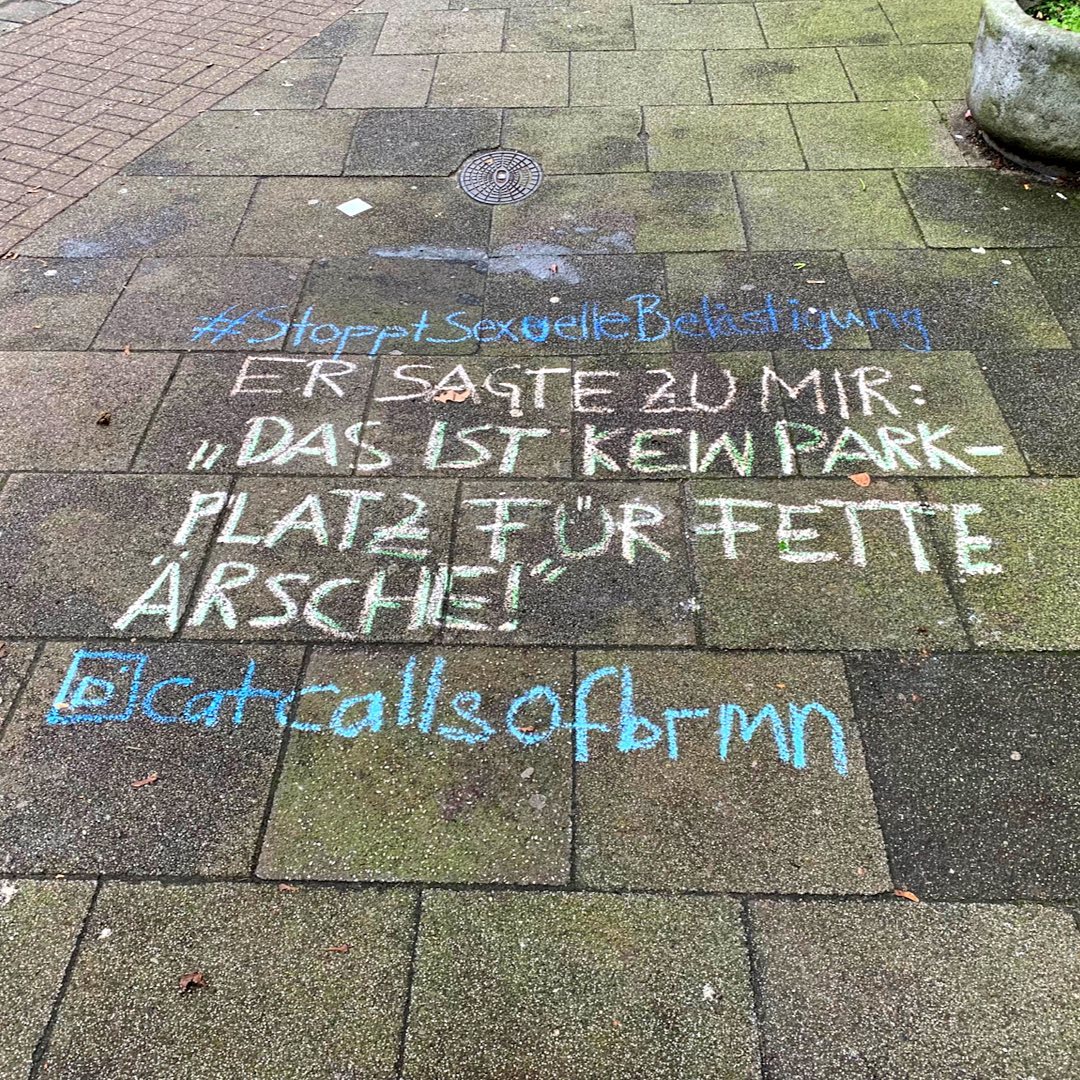 #StopptSexuelleBelästigung
ER SAGTE ZU MIR:
„DAS IST KEIN PARK-
PLATZ FÜR FETTE
ÄRSCHE!“
@catcallsofbrmn